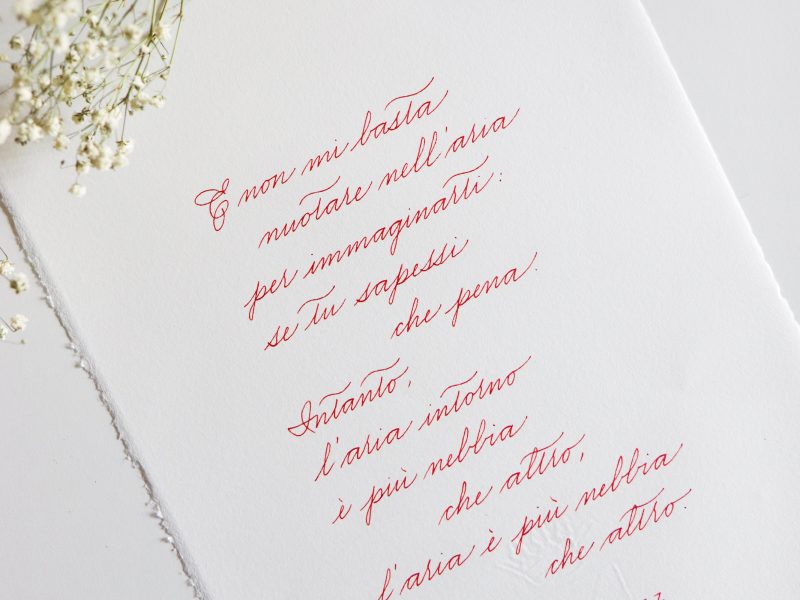 E non mi basta
nuotare nell'aria
per immaginarti:
se tu sapessi
che pena.
Intanto,
l'aria intorno
è più nebbia
che altro,
l'aria è più nebbia
che altro.